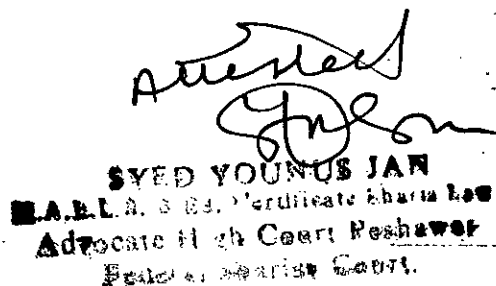 Attested
SYED YOUNUS JAN
M.A.B.L.B. B Ed. Certificate Sharia Law
Advocate High Court Peshawar
Federal Shariat Court.